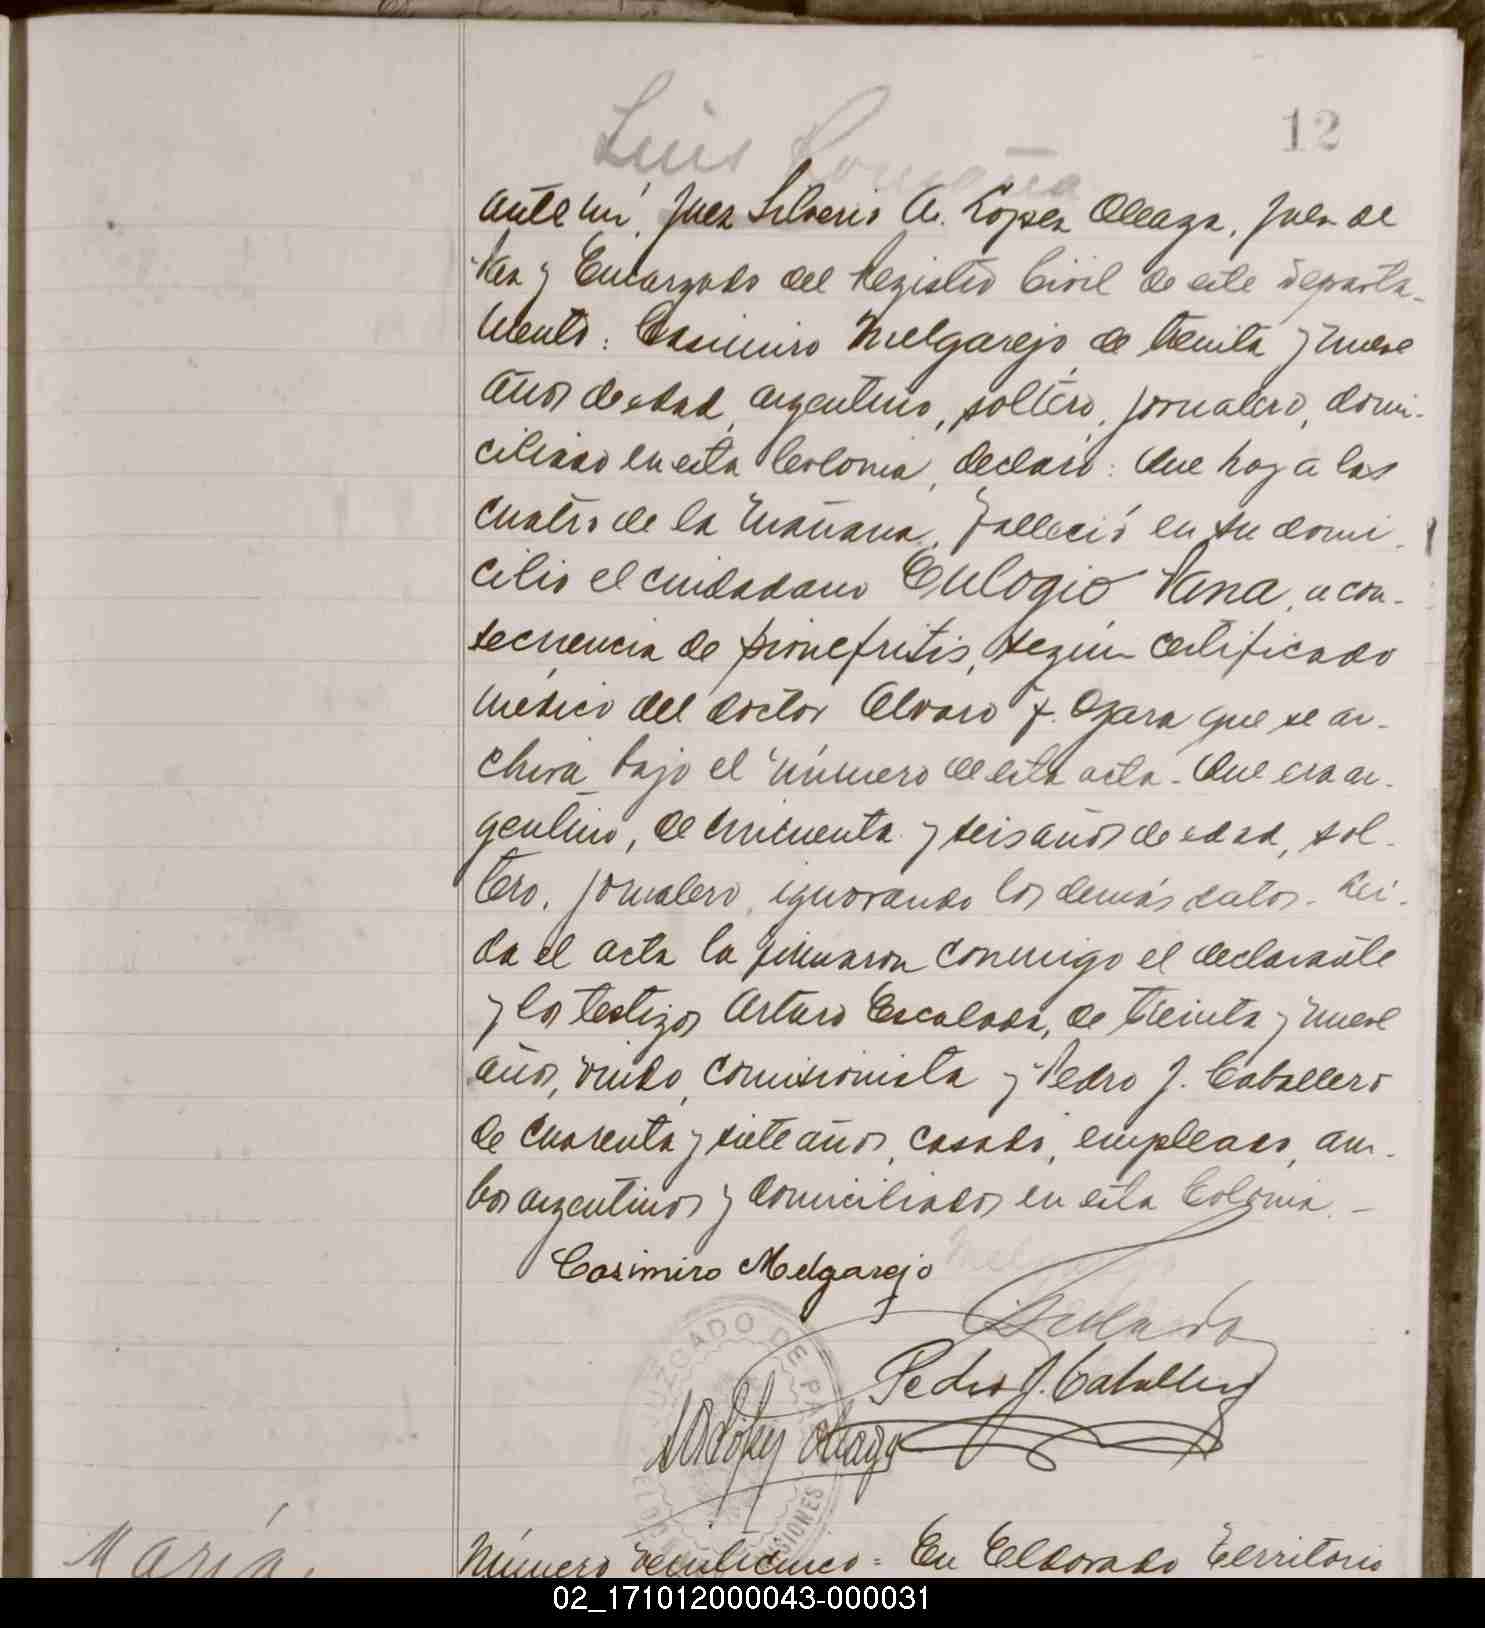 Luis Romaña
12
ante mí, Juez Silverio A. López Oleaga, Juez de
Paz y Encargado del Registro Civil de este Departa-
mento: Casimiro Melgarejo, de treinta y nueve
años de edad, argentino, soltero, jornalero, domi-
ciliado en esta Colonia, declaró: Que hoy a las
cuatro de la mañana, falleció en su domi-
cilio el ciudadano Eulogio Vana, a con-
secuencia de pionefritis, según certificado
médico del doctor Alvaro F. Ozara que se ar-
chiva bajo el número de esta acta- Que era ar-
gentino, de cincuenta y seis años de edad, sol-
tero, jornalero, ignorando los demás datos- Leí-
da el acta la firmaron conmigo el declarante
y los testigos Arturo Escalada, de treinta y nueve
años, viudo, comisionista y Pedro J. Caballero
de cuarenta y siete años, casado, empleado, am-
bos argentinos y domiciliados en esta Colonia. -
Casimiro Melgarejo
Escalada
Pedro J. Caballero
SALópez Oleaga
JUZGADO DE PAZ
MISIONES
María
Número veinticinco= En Eldorado Territorio
02_171012000043-000031